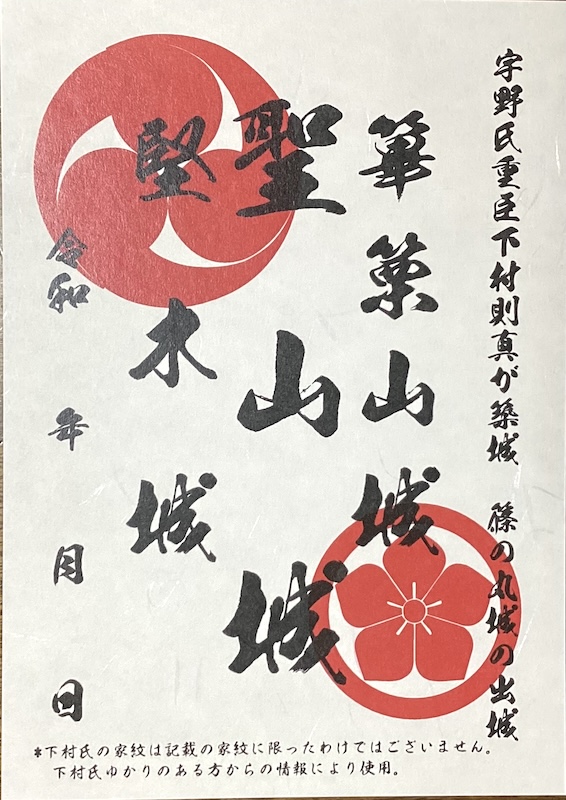 宇野氏重臣下村則真が築城 篠の丸城の出城
篳篥山城
聖山城
堅木城
令和 年 月 日
*下村氏の家紋は記載の家紋に限ったわけではございません。
下村氏ゆかりのある方からの情報により使用。